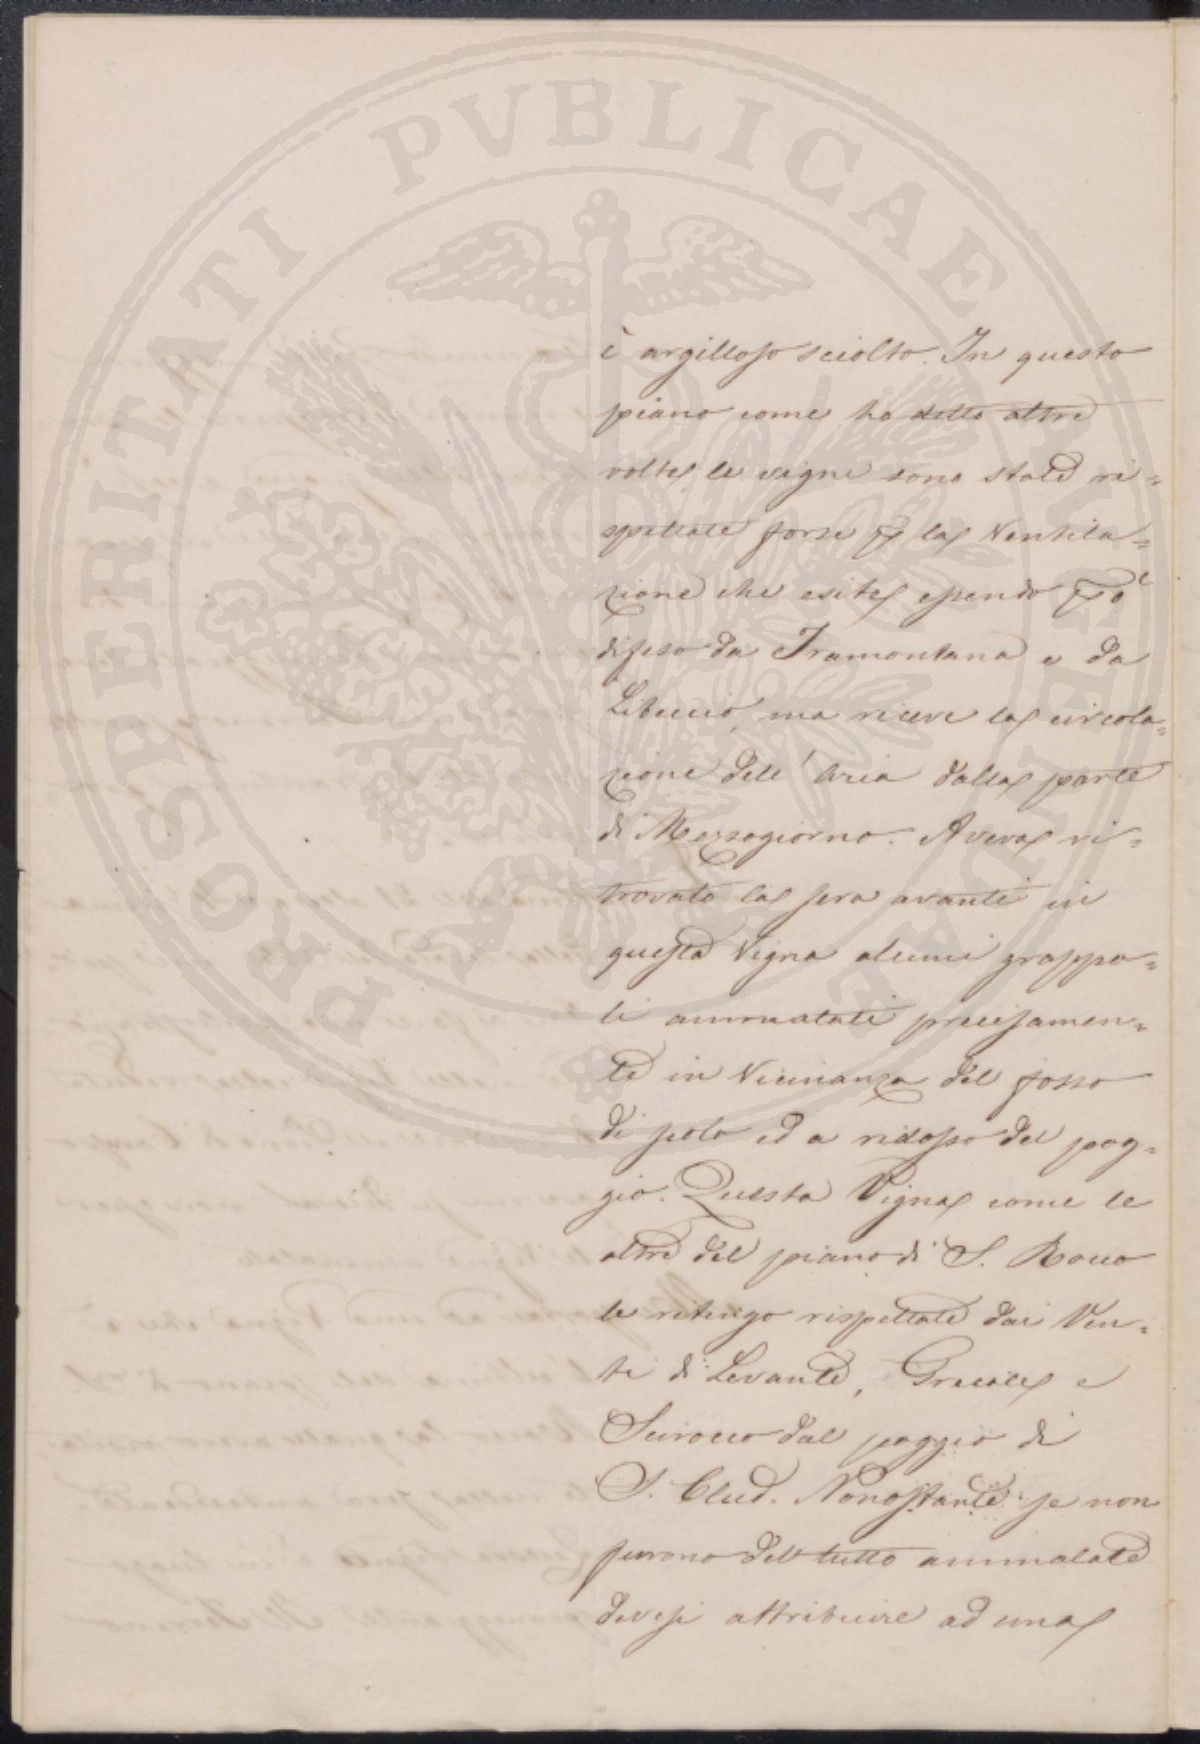 PROSPERITATI PVBLICAE AVGENDAE
è argilloso sciolto. In questo
piano come ho detto altre
volte le vigne sono state ri=
spettate forse p la Ventila=
zione che esite essendo però
difeso da Tramontana e da
Libeccio, ma riceve la circola=
zione dell'Aria dalla parte
di Mezzogiorno. Aveva ri=
trovato la sera avanti in
questa Vigna alcuni grappo=
li ammalati precisamen=
te in Vicinanza del fosso
di polo ed a ridosso del pog=
gio. Questa Vigna come le
altre del piano di S. Rocco
le ritengo rispettate dai Ven=
ti di Levante, Grecale e
Scirocco dal poggio di
S. Clud. Nonostante se non
furono del tutto ammalate
devesi attribuire ad una